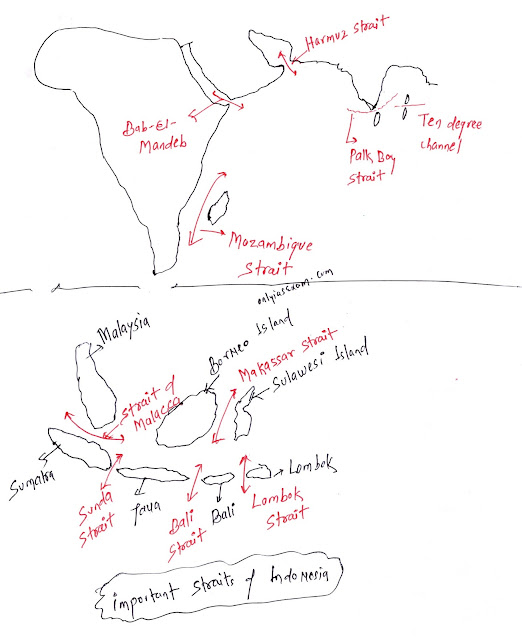 Harmuz Strait
Bab-El-
Mandeb
Ten degree
channel
Palk Bay
Strait
Mozambique
Strait
onlyiasexam.com
Malaysia
Borneo Island
Makassar Strait
Sulawesi Island
Strait of
Malacca
Sumatra
Sunda
Strait
Java
Bali
Strait
Bali
Lombok
Lombok
Strait
important straits of Indonesia